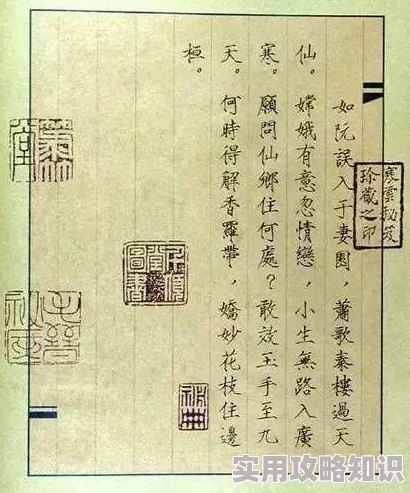 如阮誤入于妻園，蕭歌秦樓過天
仙。嫦娥有意忽情戀，小生無路入廣
寒。願問仙鄉住何處？敢效玉手至九
天。何時得解香羅帶，嬌妙花枝住邊
桓。
寒雲秘笈
珍藏之印
实用攻略知识